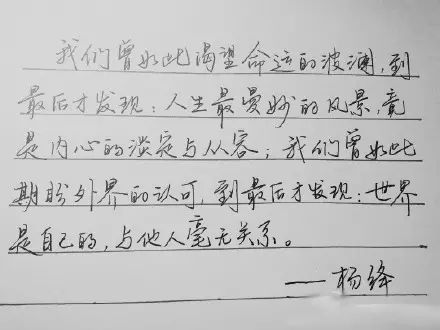 我们曾如此渴望命运的波澜,到
最后才发现:人生最曼妙的风景,竟
是内心的淡定与从容;我们曾如此
期盼外界的认可,到最后才发现:世界
是自己的,与他人毫无关系。
——杨绛